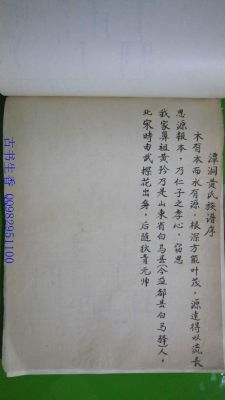 潭洞黄氏族谱序
木有本而水有源，根深方能叶茂，源远得以流长
思源报本，乃仁子之孝心，窃思
我家鼻祖黄矜乃是山东省白马县（今益都县白马驿）人，
北宋時由武探花出身，后随狄青元帅
古书生香 009829511100